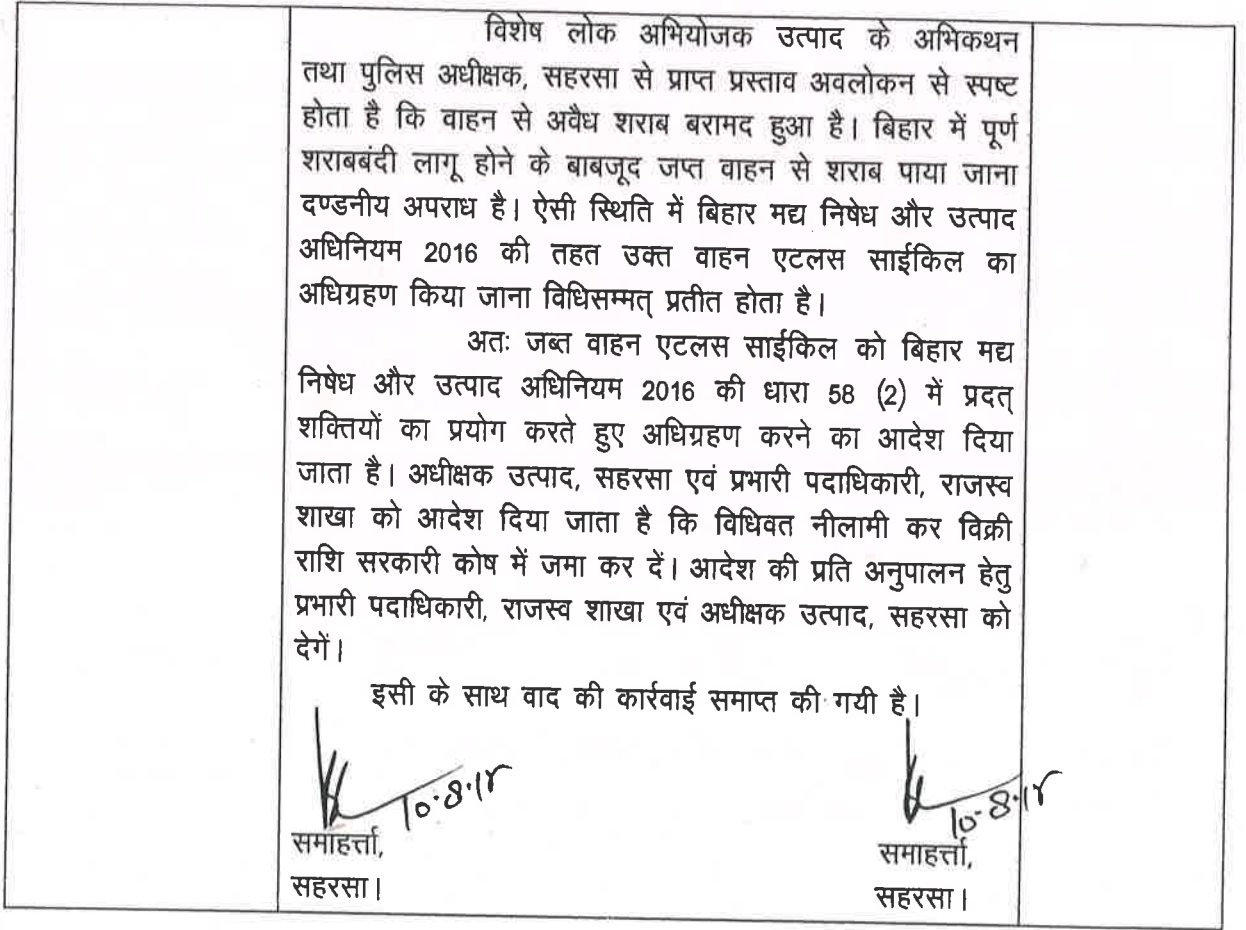 विशेष लोक अभियोजक उत्पाद के अभिकथन
तथा पुलिस अधीक्षक, सहरसा से प्राप्त प्रस्ताव अवलोकन से स्पष्ट
होता है कि वाहन से अवैध शराब बरामद हुआ है। बिहार में पूर्ण
शराबबंदी लागू होने के बाबजूद जप्त वाहन से शराब पाया जाना
दण्डनीय अपराध है। ऐसी स्थिति में बिहार मद्य निषेध और उत्पाद
अधिनियम 2016 की तहत उक्त वाहन एटलस साईकिल का
अधिग्रहण किया जाना विधिसम्मत् प्रतीत होता है।
अतः जब्त वाहन एटलस साईकिल को बिहार मद्य
निषेध और उत्पाद अधिनियम 2016 की धारा 58 (2) में प्रदत्
शक्तियों का प्रयोग करते हुए अधिग्रहण करने का आदेश दिया
जाता है। अधीक्षक उत्पाद, सहरसा एवं प्रभारी पदाधिकारी, राजस्व
शाखा को आदेश दिया जाता है कि विधिवत नीलामी कर विक्री
राशि सरकारी कोष में जमा कर दें। आदेश की प्रति अनुपालन हेतु
प्रभारी पदाधिकारी, राजस्व शाखा एवं अधीक्षक उत्पाद, सहरसा को
देगें।
इसी के साथ वाद की कार्रवाई समाप्त की गयी है।
समाहर्त्ता, समाहर्त्ता,
सहरसा। सहरसा।